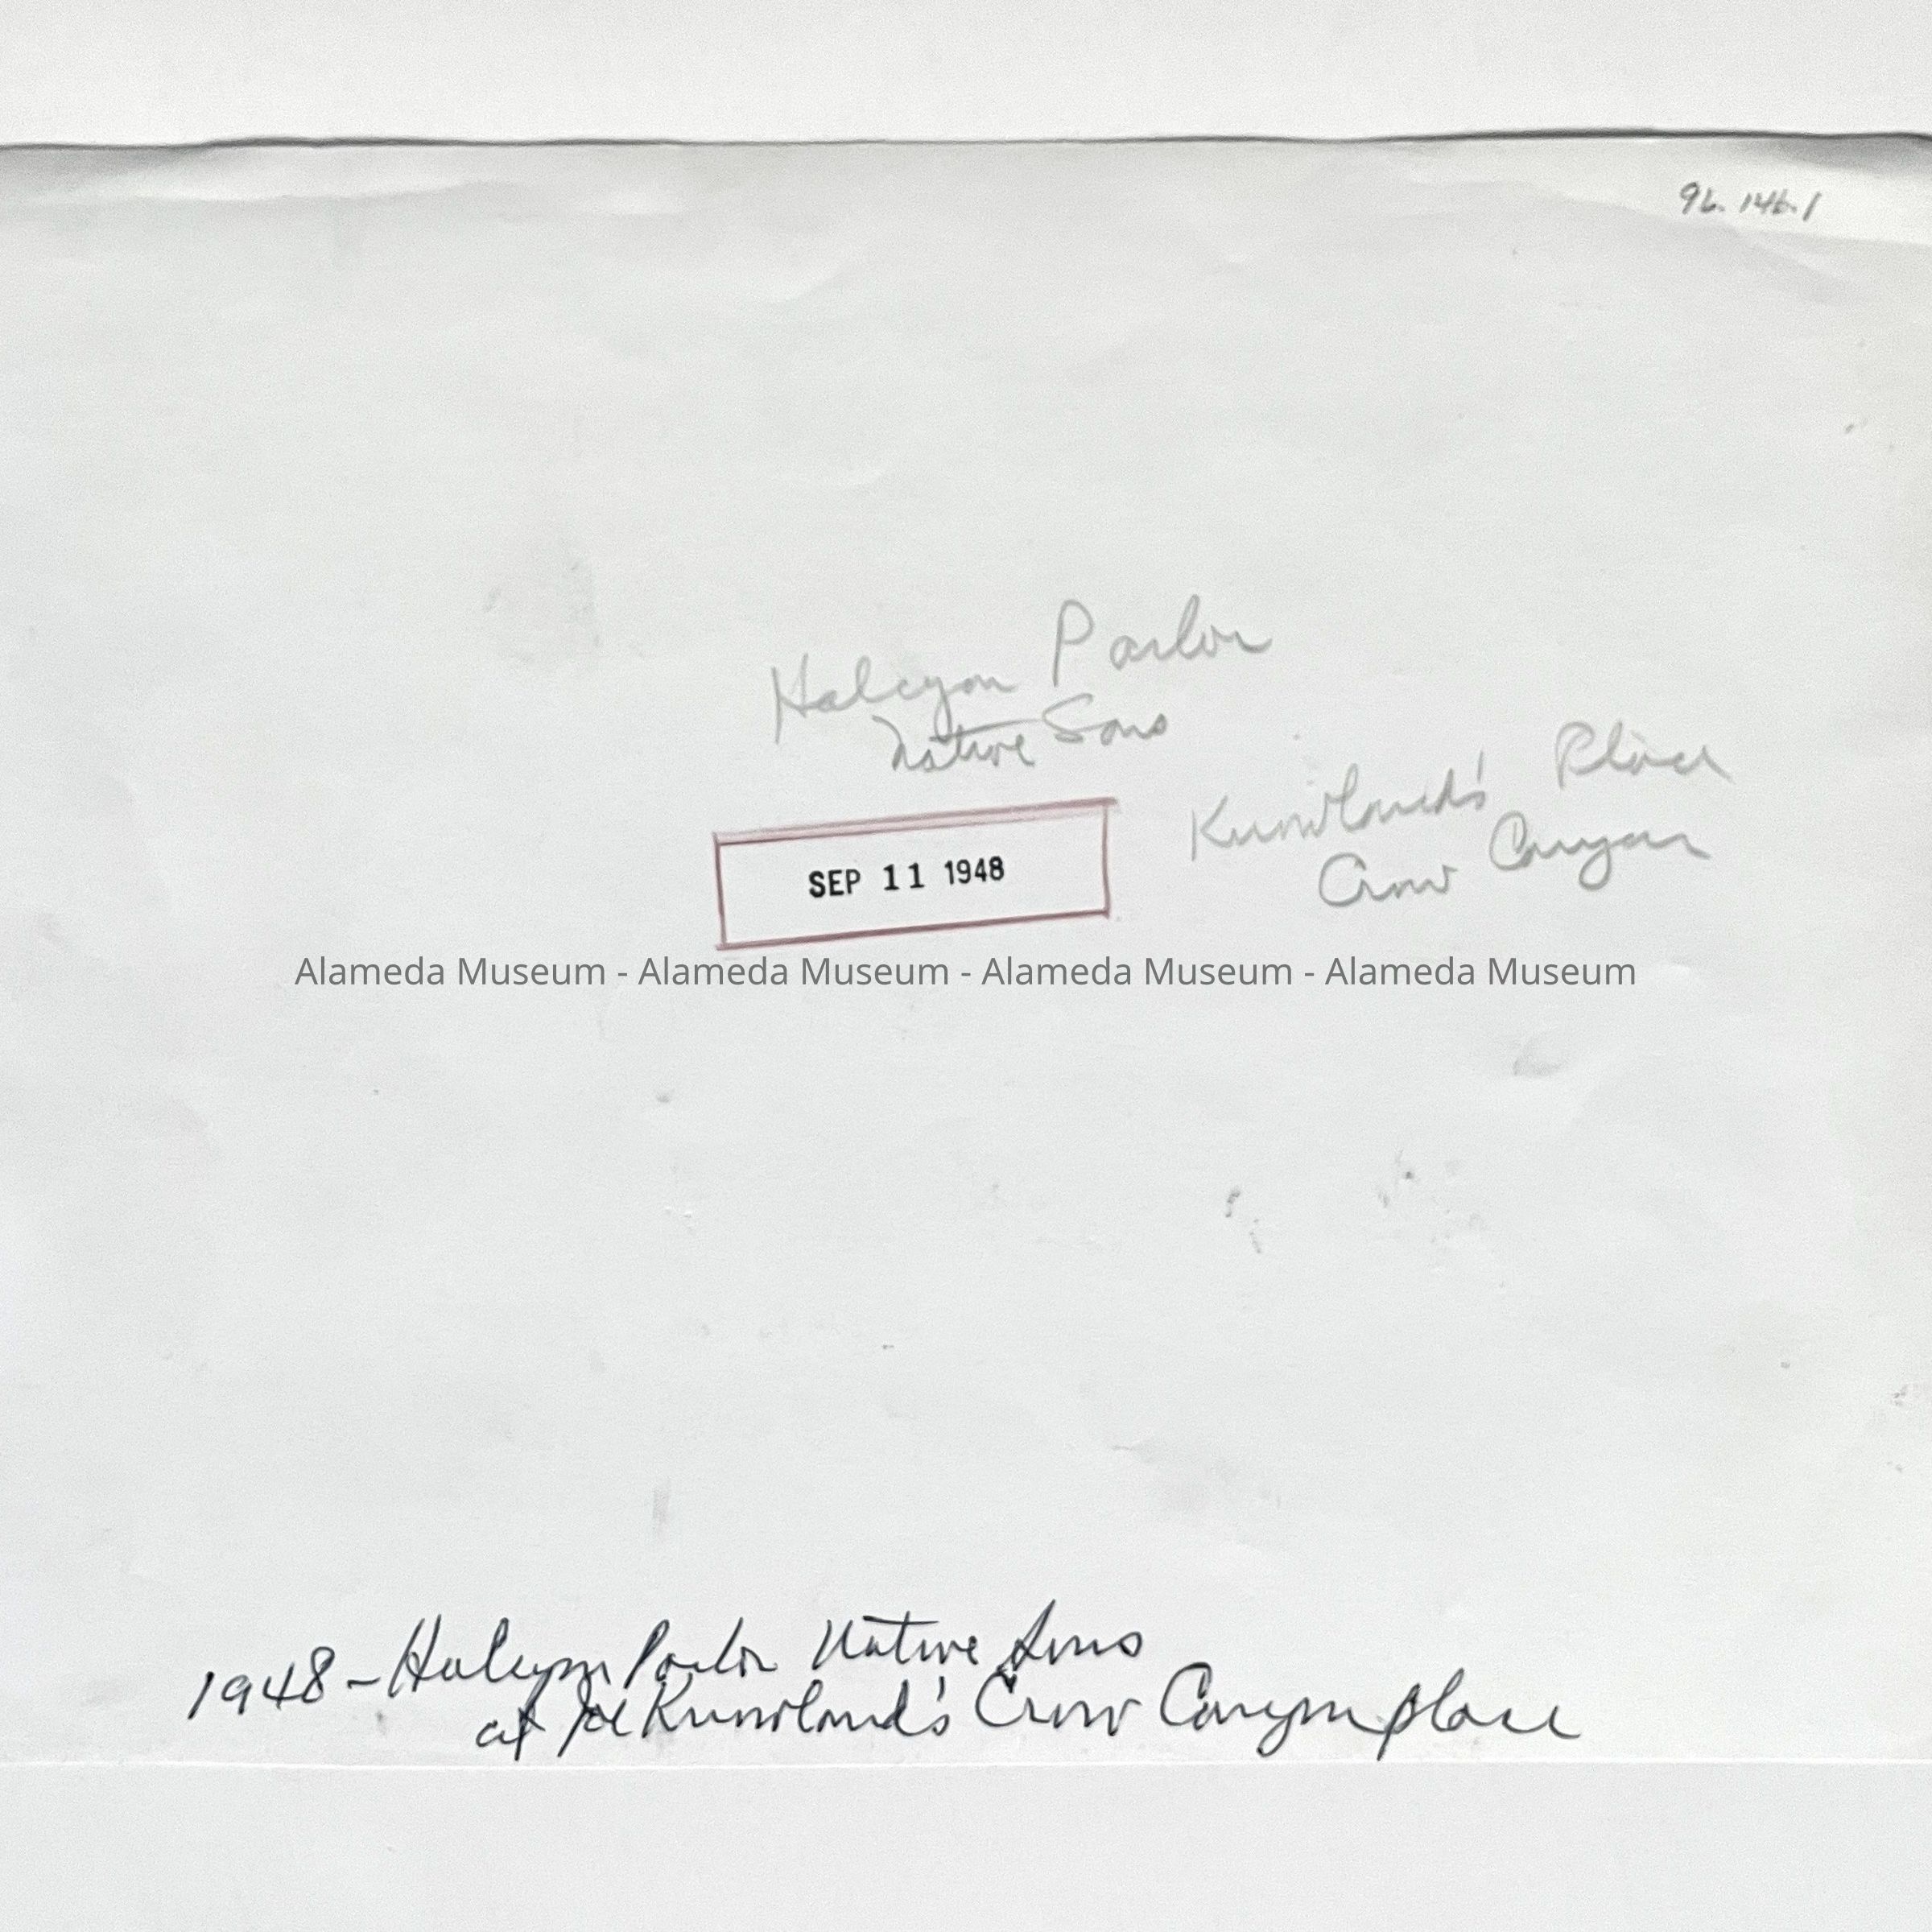 96.146.1
Halcyon Parlor
Native Sons
Knowland's Place
Crow Canyon
SEP 11 1948
Alameda Museum - Alameda Museum - Alameda Museum - Alameda Museum
1948 - Halcyon Parlor Native Sons
at Joe Knowland's Crow Canyon place